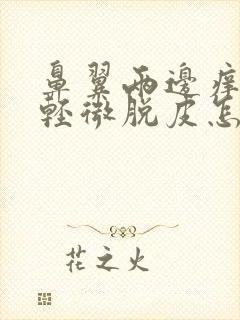 鼻翼兩邊癢
輕微脫皮怎
花之火